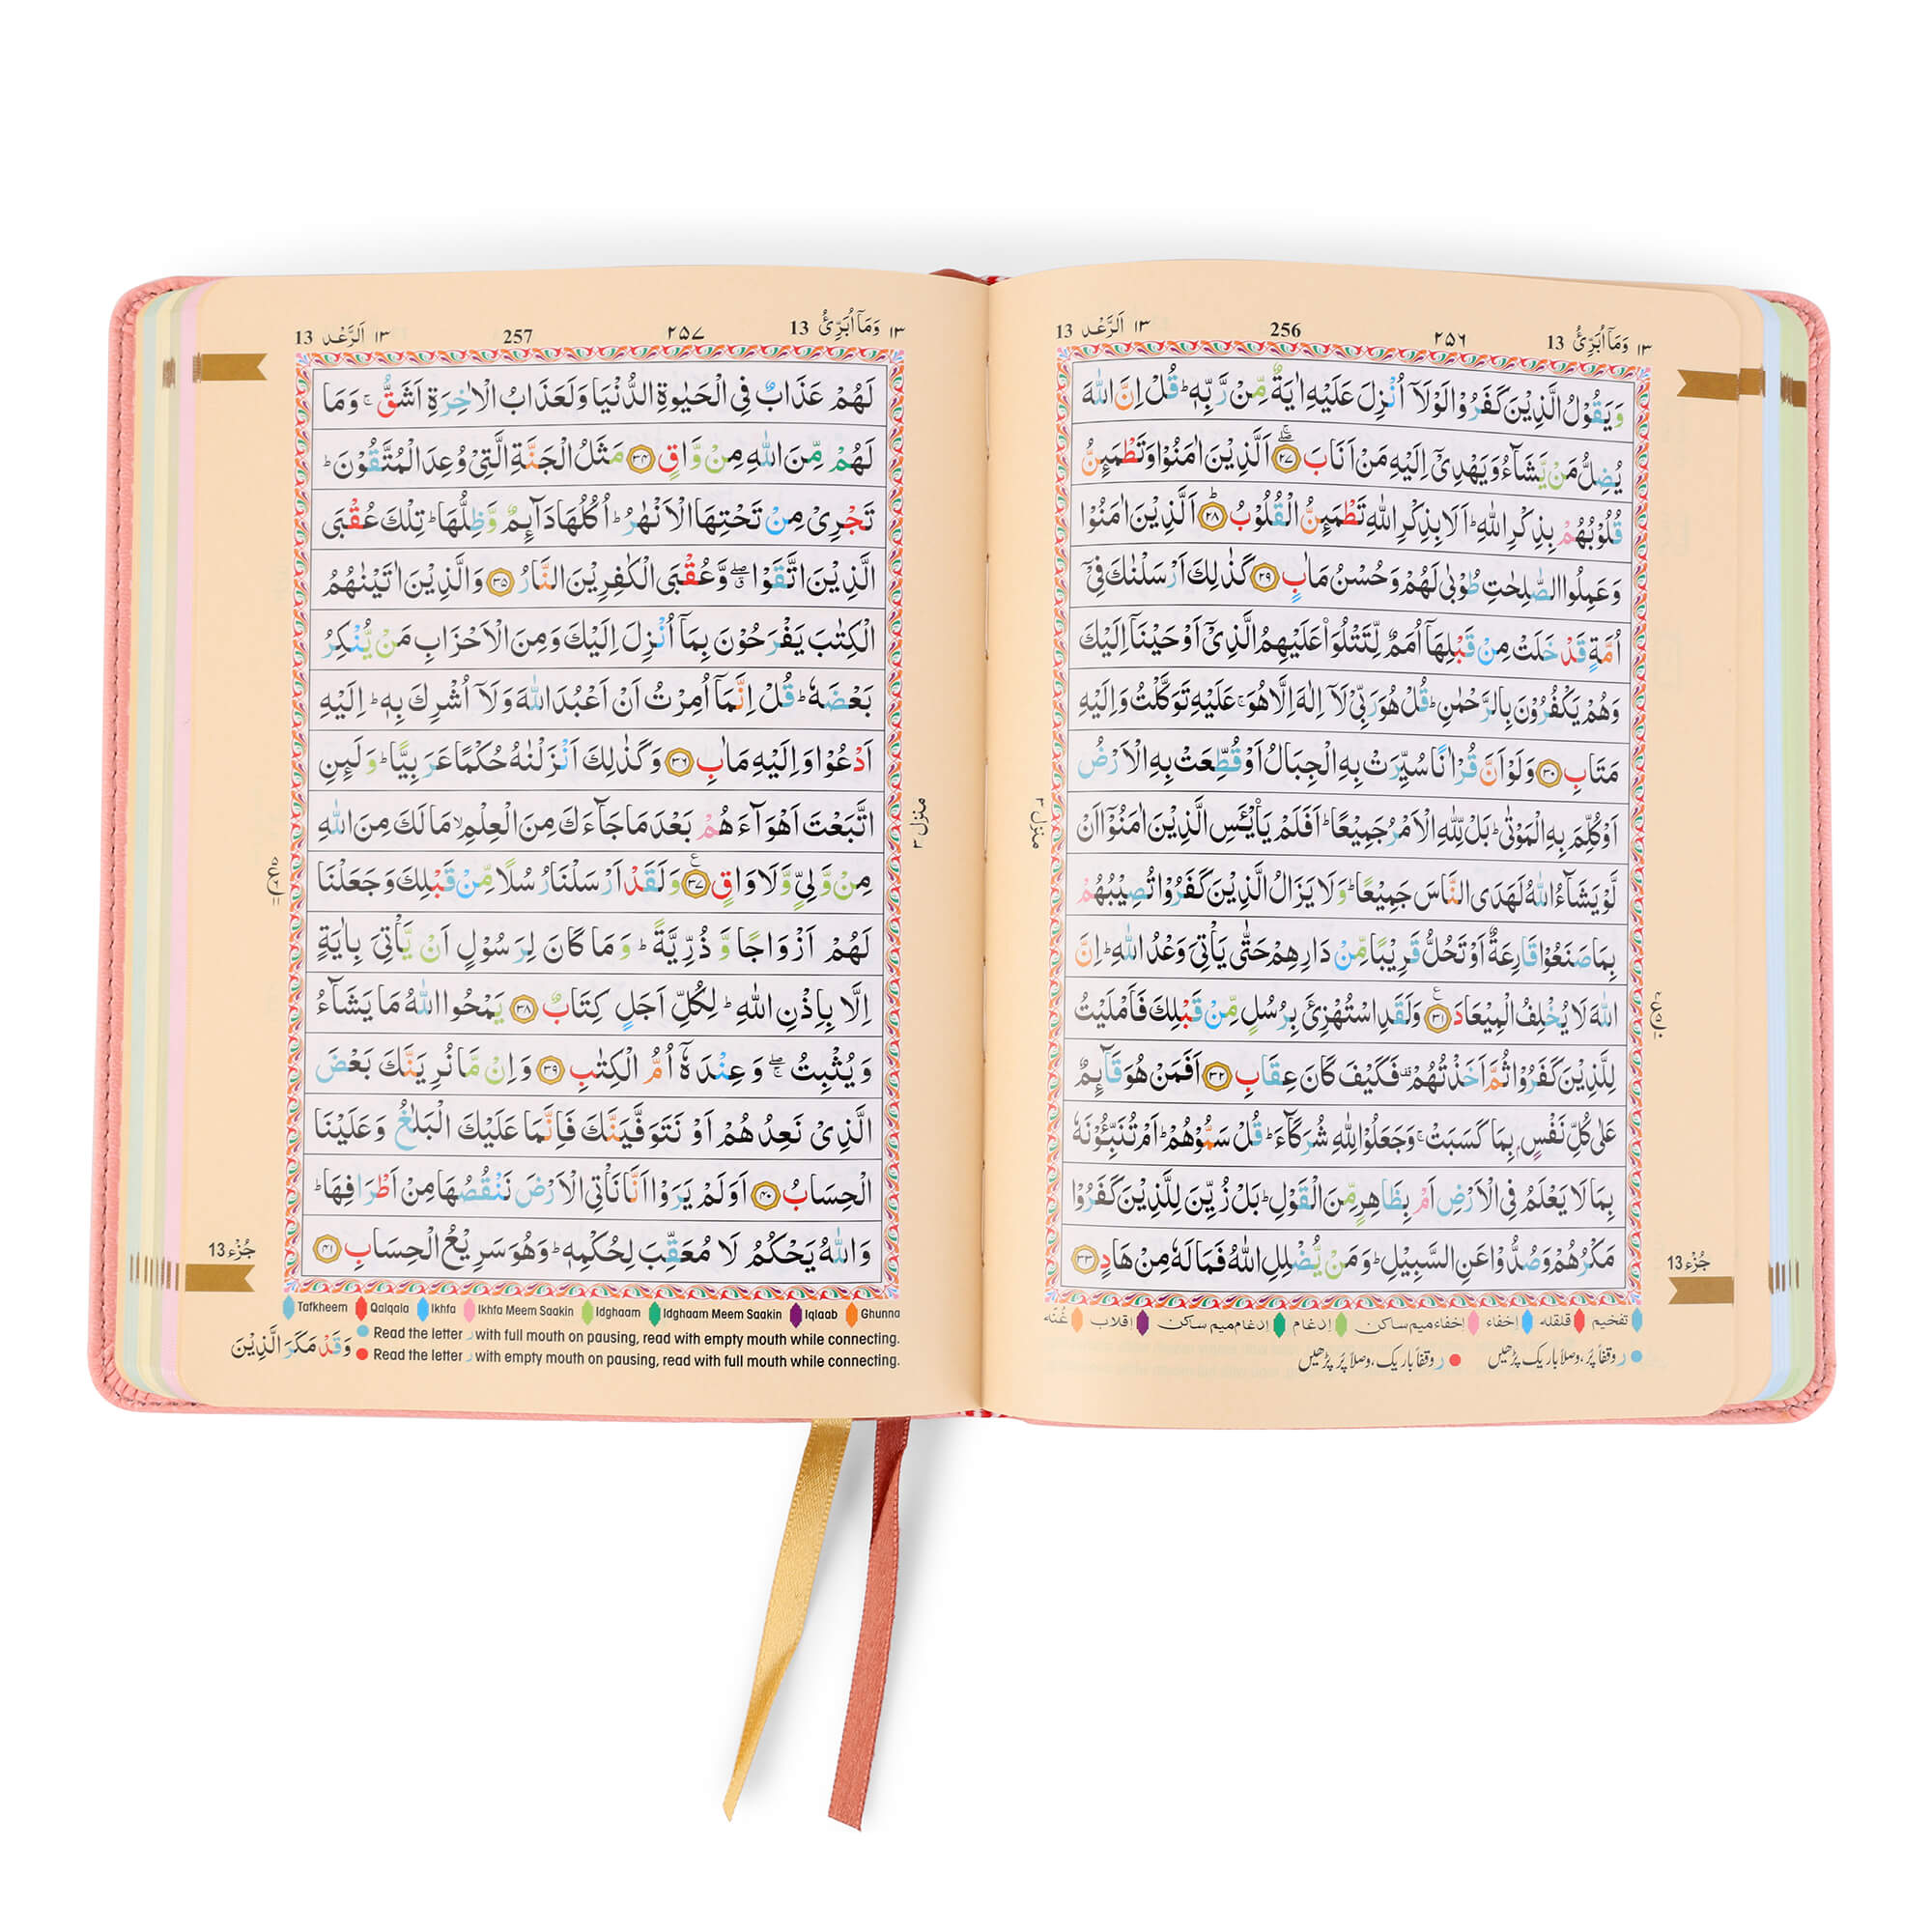 ١٣ وَمَآ اُبَرِّئُ 13
٢٥٦
256
١٣ اَلرَّعْد 13
وَيَقُوْلُ الَّذِيْنَ كَفَرُوْا لَوْلَآ اُنْزِلَ عَلَيْهِ اٰيَةٌ مِّنْ رَّبِّهٖ ؕ قُلْ اِنَّ اللّٰهَ
يُضِلُّ مَنْ يَّشَآءُ وَيَهْدِيْٓ اِلَيْهِ مَنْ اَنَابَ ۖۚ ﴿٢٧﴾ اَلَّذِيْنَ اٰمَنُوْا وَتَطْمَئِنُّ
قُلُوْبُهُمْ بِذِكْرِ اللّٰهِ ؕ اَلَا بِذِكْرِ اللّٰهِ تَطْمَئِنُّ الْقُلُوْبُ ؕ ﴿٢٨﴾ اَلَّذِيْنَ اٰمَنُوْا
وَعَمِلُوا الصّٰلِحٰتِ طُوْبٰى لَهُمْ وَحُسْنُ مَاٰبٍ ﴿٢٩﴾ كَذٰلِكَ اَرْسَلْنٰكَ فِيْٓ
اُمَّةٍ قَدْ خَلَتْ مِنْ قَبْلِهَآ اُمَمٌ لِّتَتْلُوَا۟ عَلَيْهِمُ الَّذِيْٓ اَوْحَيْنَآ اِلَيْكَ
وَهُمْ يَكْفُرُوْنَ بِالرَّحْمٰنِ ؕ قُلْ هُوَ رَبِّيْ لَآ اِلٰهَ اِلَّا هُوَ ۚ عَلَيْهِ تَوَكَّلْتُ وَاِلَيْهِ
مَتَابِ ﴿٣٠﴾ وَلَوْ اَنَّ قُرْاٰنًا سُيِّرَتْ بِهِ الْجِبَالُ اَوْ قُطِّعَتْ بِهِ الْاَرْضُ
اَوْ كُلِّمَ بِهِ الْمَوْتٰى ؕ بَلْ لِّلّٰهِ الْاَمْرُ جَمِيْعًا ؕ اَفَلَمْ يَا۟يْـَٔسِ الَّذِيْنَ اٰمَنُوْٓا اَنْ
لَّوْ يَشَآءُ اللّٰهُ لَهَدَى النَّاسَ جَمِيْعًا ؕ وَلَا يَزَالُ الَّذِيْنَ كَفَرُوْا تُصِيْبُهُمْ
بِمَا صَنَعُوْا قَارِعَةٌ اَوْ تَحُلُّ قَرِيْبًا مِّنْ دَارِهِمْ حَتّٰى يَاْتِيَ وَعْدُ اللّٰهِ ؕ اِنَّ
اللّٰهَ لَا يُخْلِفُ الْمِيْعَادَ ﴿٣١﴾ وَلَقَدِ اسْتُهْزِئَ بِرُسُلٍ مِّنْ قَبْلِكَ فَاَمْلَيْتُ
لِلَّذِيْنَ كَفَرُوْا ثُمَّ اَخَذْتُهُمْ ۫ فَكَيْفَ كَانَ عِقَابِ ﴿٣٢﴾ اَفَمَنْ هُوَ قَآئِمٌ
عَلٰى كُلِّ نَفْسٍۭ بِمَا كَسَبَتْ ۚ وَجَعَلُوْا لِلّٰهِ شُرَكَآءَ ؕ قُلْ سَمُّوْهُمْ ؕ اَمْ تُنَبِّـُٔوْنَهٗ
بِمَا لَا يَعْلَمُ فِي الْاَرْضِ اَمْ بِظَاهِرٍ مِّنَ الْقَوْلِ ؕ بَلْ زُيِّنَ لِلَّذِيْنَ كَفَرُوْا
مَكْرُهُمْ وَصُدُّوْا عَنِ السَّبِيْلِ ؕ وَمَنْ يُّضْلِلِ اللّٰهُ فَمَا لَهٗ مِنْ هَادٍ ﴿٣٣﴾
منزل ٣
جُزْء 13
تفخیم قلقلہ إخفاء إخفاء میم ساکن إدغام إدغام میم ساکن إقلاب غنّہ
ر وقفاً پُر، وصلاً باریک پڑھیں ر وقفاً باریک، وصلاً پُر پڑھیں
١٣ وَمَآ اُبَرِّئُ 13
٢٥٧
257
١٣ اَلرَّعْد 13
لَهُمْ عَذَابٌ فِي الْحَيٰوةِ الدُّنْيَا وَلَعَذَابُ الْاٰخِرَةِ اَشَقُّ ۚ وَمَا
لَهُمْ مِّنَ اللّٰهِ مِنْ وَّاقٍ ﴿٣٤﴾ مَثَلُ الْجَنَّةِ الَّتِيْ وُعِدَ الْمُتَّقُوْنَ ؕ
تَجْرِيْ مِنْ تَحْتِهَا الْاَنْهٰرُ ؕ اُكُلُهَا دَآئِمٌ وَّظِلُّهَا ؕ تِلْكَ عُقْبَى
الَّذِيْنَ اتَّقَوْا ۖۗ وَّعُقْبَى الْكٰفِرِيْنَ النَّارُ ﴿٣٥﴾ وَالَّذِيْنَ اٰتَيْنٰهُمُ
الْكِتٰبَ يَفْرَحُوْنَ بِمَآ اُنْزِلَ اِلَيْكَ وَمِنَ الْاَحْزَابِ مَنْ يُّنْكِرُ
بَعْضَهٗ ؕ قُلْ اِنَّمَآ اُمِرْتُ اَنْ اَعْبُدَ اللّٰهَ وَلَآ اُشْرِكَ بِهٖ ؕ اِلَيْهِ
اَدْعُوْا وَاِلَيْهِ مَاٰبِ ﴿٣٦﴾ وَكَذٰلِكَ اَنْزَلْنٰهُ حُكْمًا عَرَبِيًّا ؕ وَلَئِنِ
اتَّبَعْتَ اَهْوَآءَهُمْ بَعْدَ مَا جَآءَكَ مِنَ الْعِلْمِ ۙ مَا لَكَ مِنَ اللّٰهِ
مِنْ وَّلِيٍّ وَّلَا وَاقٍ ﴿٣٧﴾ وَلَقَدْ اَرْسَلْنَا رُسُلًا مِّنْ قَبْلِكَ وَجَعَلْنَا
لَهُمْ اَزْوَاجًا وَّذُرِّيَّةً ؕ وَمَا كَانَ لِرَسُوْلٍ اَنْ يَّاْتِيَ بِاٰيَةٍ
اِلَّا بِاِذْنِ اللّٰهِ ؕ لِكُلِّ اَجَلٍ كِتَابٌ ﴿٣٨﴾ يَمْحُوا اللّٰهُ مَا يَشَآءُ
وَيُثْبِتُ ۖۚ وَعِنْدَهٗٓ اُمُّ الْكِتٰبِ ﴿٣٩﴾ وَاِنْ مَّا نُرِيَنَّكَ بَعْضَ
الَّذِيْ نَعِدُهُمْ اَوْ نَتَوَفَّيَنَّكَ فَاِنَّمَا عَلَيْكَ الْبَلٰغُ وَعَلَيْنَا
الْحِسَابُ ﴿٤٠﴾ اَوَلَمْ يَرَوْا اَنَّا نَاْتِي الْاَرْضَ نَنْقُصُهَا مِنْ اَطْرَافِهَا ؕ
وَاللّٰهُ يَحْكُمُ لَا مُعَقِّبَ لِحُكْمِهٖ ؕ وَهُوَ سَرِيْعُ الْحِسَابِ ﴿٤١﴾
منزل ٣
جُزْء 13
Tafkheem Qalqala Ikhfa Ikhfa Meem Saakin Idghaam Idghaam Meem Saakin Iqlaab Ghunna
Read the letter ر with full mouth on pausing, read with empty mouth while connecting.
Read the letter ر with empty mouth on pausing, read with full mouth while connecting.
وَقَدْ مَكَرَ الَّذِيْنَ